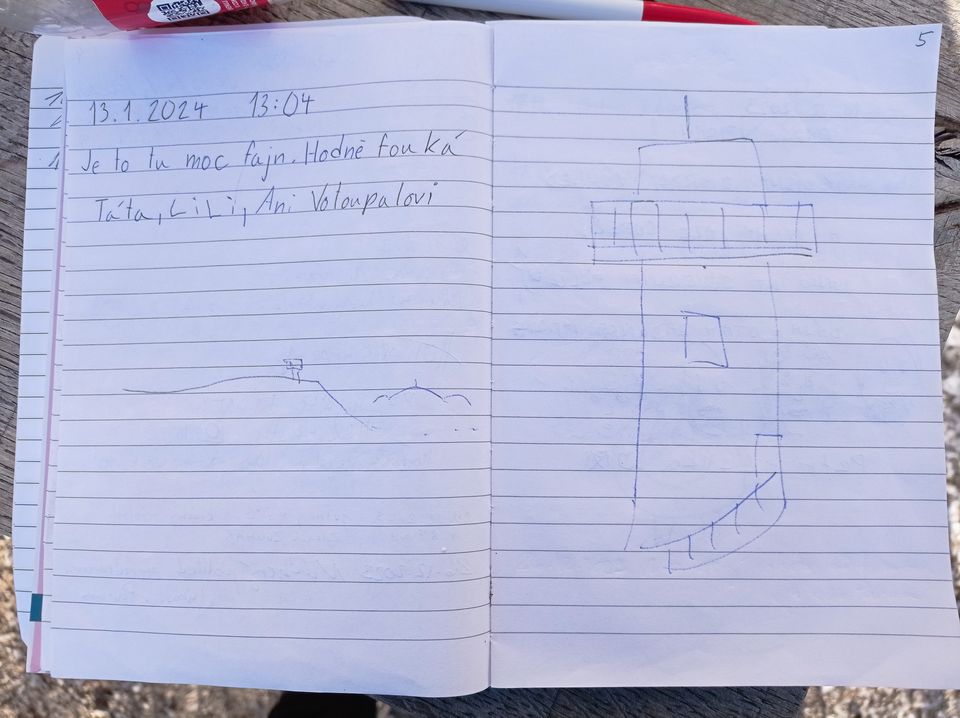 13.1.2024 13:04
Je to tu moc fajn. Hodně fouká
Táta, LiLi, Ani Votoupalovi
5